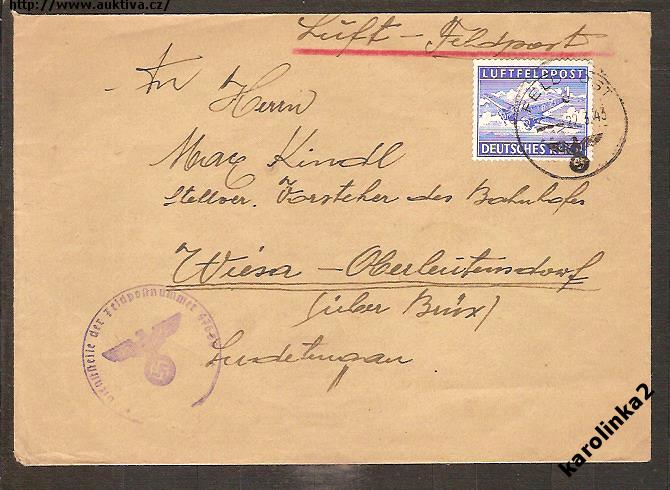 http://www.auktiva.cz/
Luft - Feldpost
LUFTFELDPOST
DEUTSCHES REICH
FELDPOST
22.3.43
An
Herrn
Max Kindl
Stellver. Vorsteher des Bahnhofes
Wiesa - Oberleutensdorf
(über Brüx)
Sudetengau
Dienststelle der Feldpostnummer
karolinka2